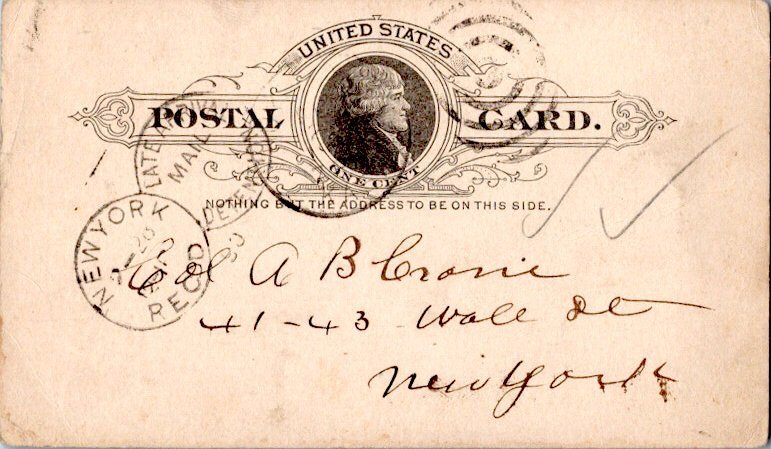 UNITED STATES
POSTAL CARD.
ONE CENT
NOTHING BUT THE ADDRESS TO BE ON THIS SIDE.
LATE
MAIL
NEW YORK
REC'D
Col A B Crane
41-43 Wall St
New York